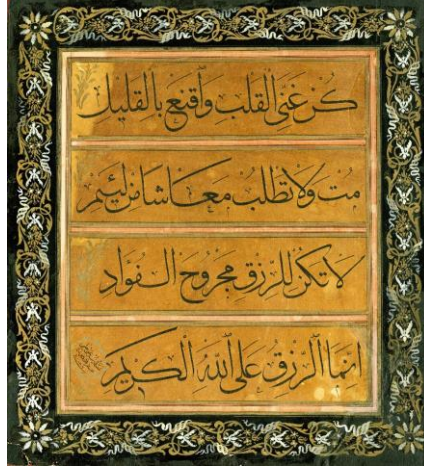 كن غني القلب واقنع بالقليل
مت ولا تطلب معاشا من لئيم
لا تكن للرزق مجروح الفؤاد
انما الرزق على الله الكريم